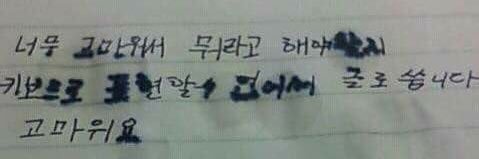 너무 고마워서 뭐라고 해야할지
키보드로 표현할수 없어서 글로 씁니다
고마워요